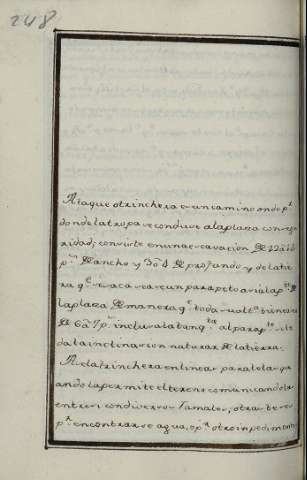 248
Ataque o trinchera es un camino ondo p.r
donde la tropa se conduce a la plaza con seg
ridad; consiste en una escavacion de 12 a 16
p.s de ancho y 3 o 4 de profundo y de la tie
rra q.e se saca se ace un parapeto acia la p.te de
la plaza de manera q.e toda su alt.a biene a ser
de 6 a 7 p.s inclusa la banq.ta al parap.to se le
da la inclinacion natural de la tierra.
A la trinchera en linea paralela qu
ando la permite el terreno comunicandola
entre si con diversos Ramales, otra be ces
p.r encontrarse agua, o p.r otro inpedimento